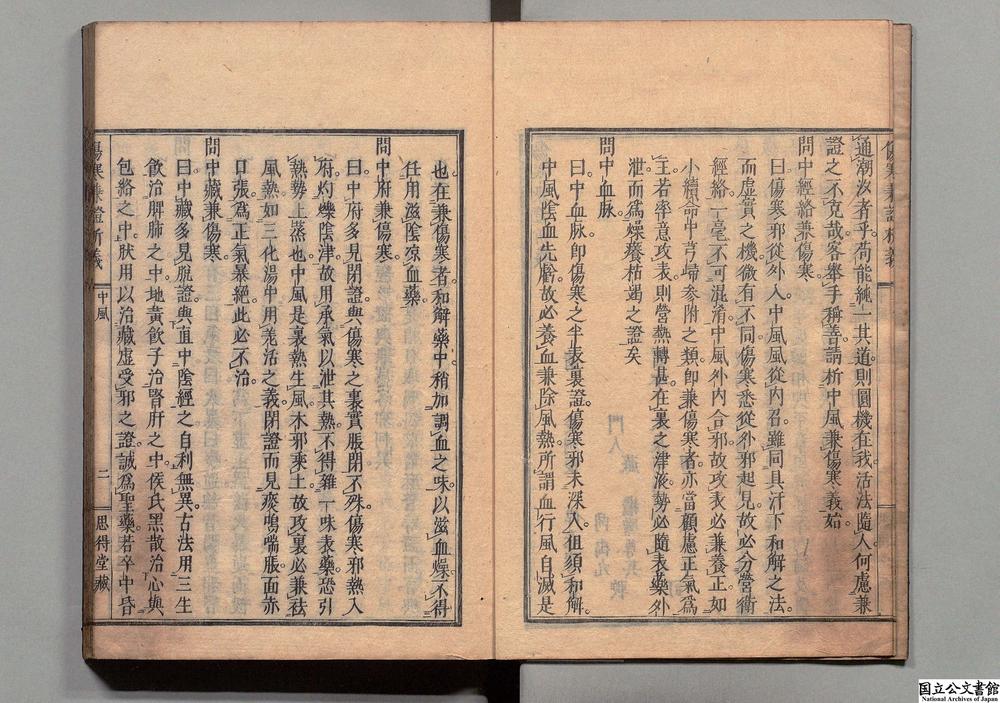 傷寒兼證析義
通潮汝者乎。苟能純一其道。則圓機在我。活法隨人。何慮兼
證之不克哉。客舉手稱善。請析中風兼傷寒義始。
問中經絡兼傷寒
曰傷寒邪從外入。中風風從內召。雖同具汗下和解之法。
而虛實之機微有不同。傷寒悉從外邪起見。故必分營衛
經絡一毫不可混淆。中風外內合邪。故攻表必兼養正。如
小續命中芎歸參附之類。即兼傷寒者。亦當顧慮正氣爲
主。若率意攻表。則營熱轉甚。在裏之津液。勢必隨表藥外
泄而爲燥癢枯竭之證矣
問中血脉
曰中血脉。即傷寒之半表裏證。傷寒邪未深入。但須和解。
中風陰血先虧。故必養血兼除風熱。所謂血行風自滅是
也。在兼傷寒者。和解藥中稍加調血之味。以滋血燥。不得
任用滋陰凉血藥。
問中府兼傷寒
曰中府多見閉證。與傷寒之裏實脹閉不殊。傷寒邪熱入
府。灼爍陰津。故用承氣以泄其熱。不得雜一味表藥。恐引
熱勢上蒸也。中風是裏熱生風。木邪乘土。故攻裏必兼祛
風熱。如三化湯中用羌活之義。閉證而見痰鳴喘脹面赤
口張。爲正氣暴絕。此必不治。
問中藏兼傷寒
曰中藏多見脫證。與直中陰經之自利無異。古法用三生
飲治脾肺之中。地黄飲子治腎肝之中。侯氏黑散治心與
包絡之中。狀用以治藏虛受邪之證。誠爲聖藥。若卒中昏
傷寒兼證析義
中風
二
思得堂藏
国立公文書館
National Archives of Japan